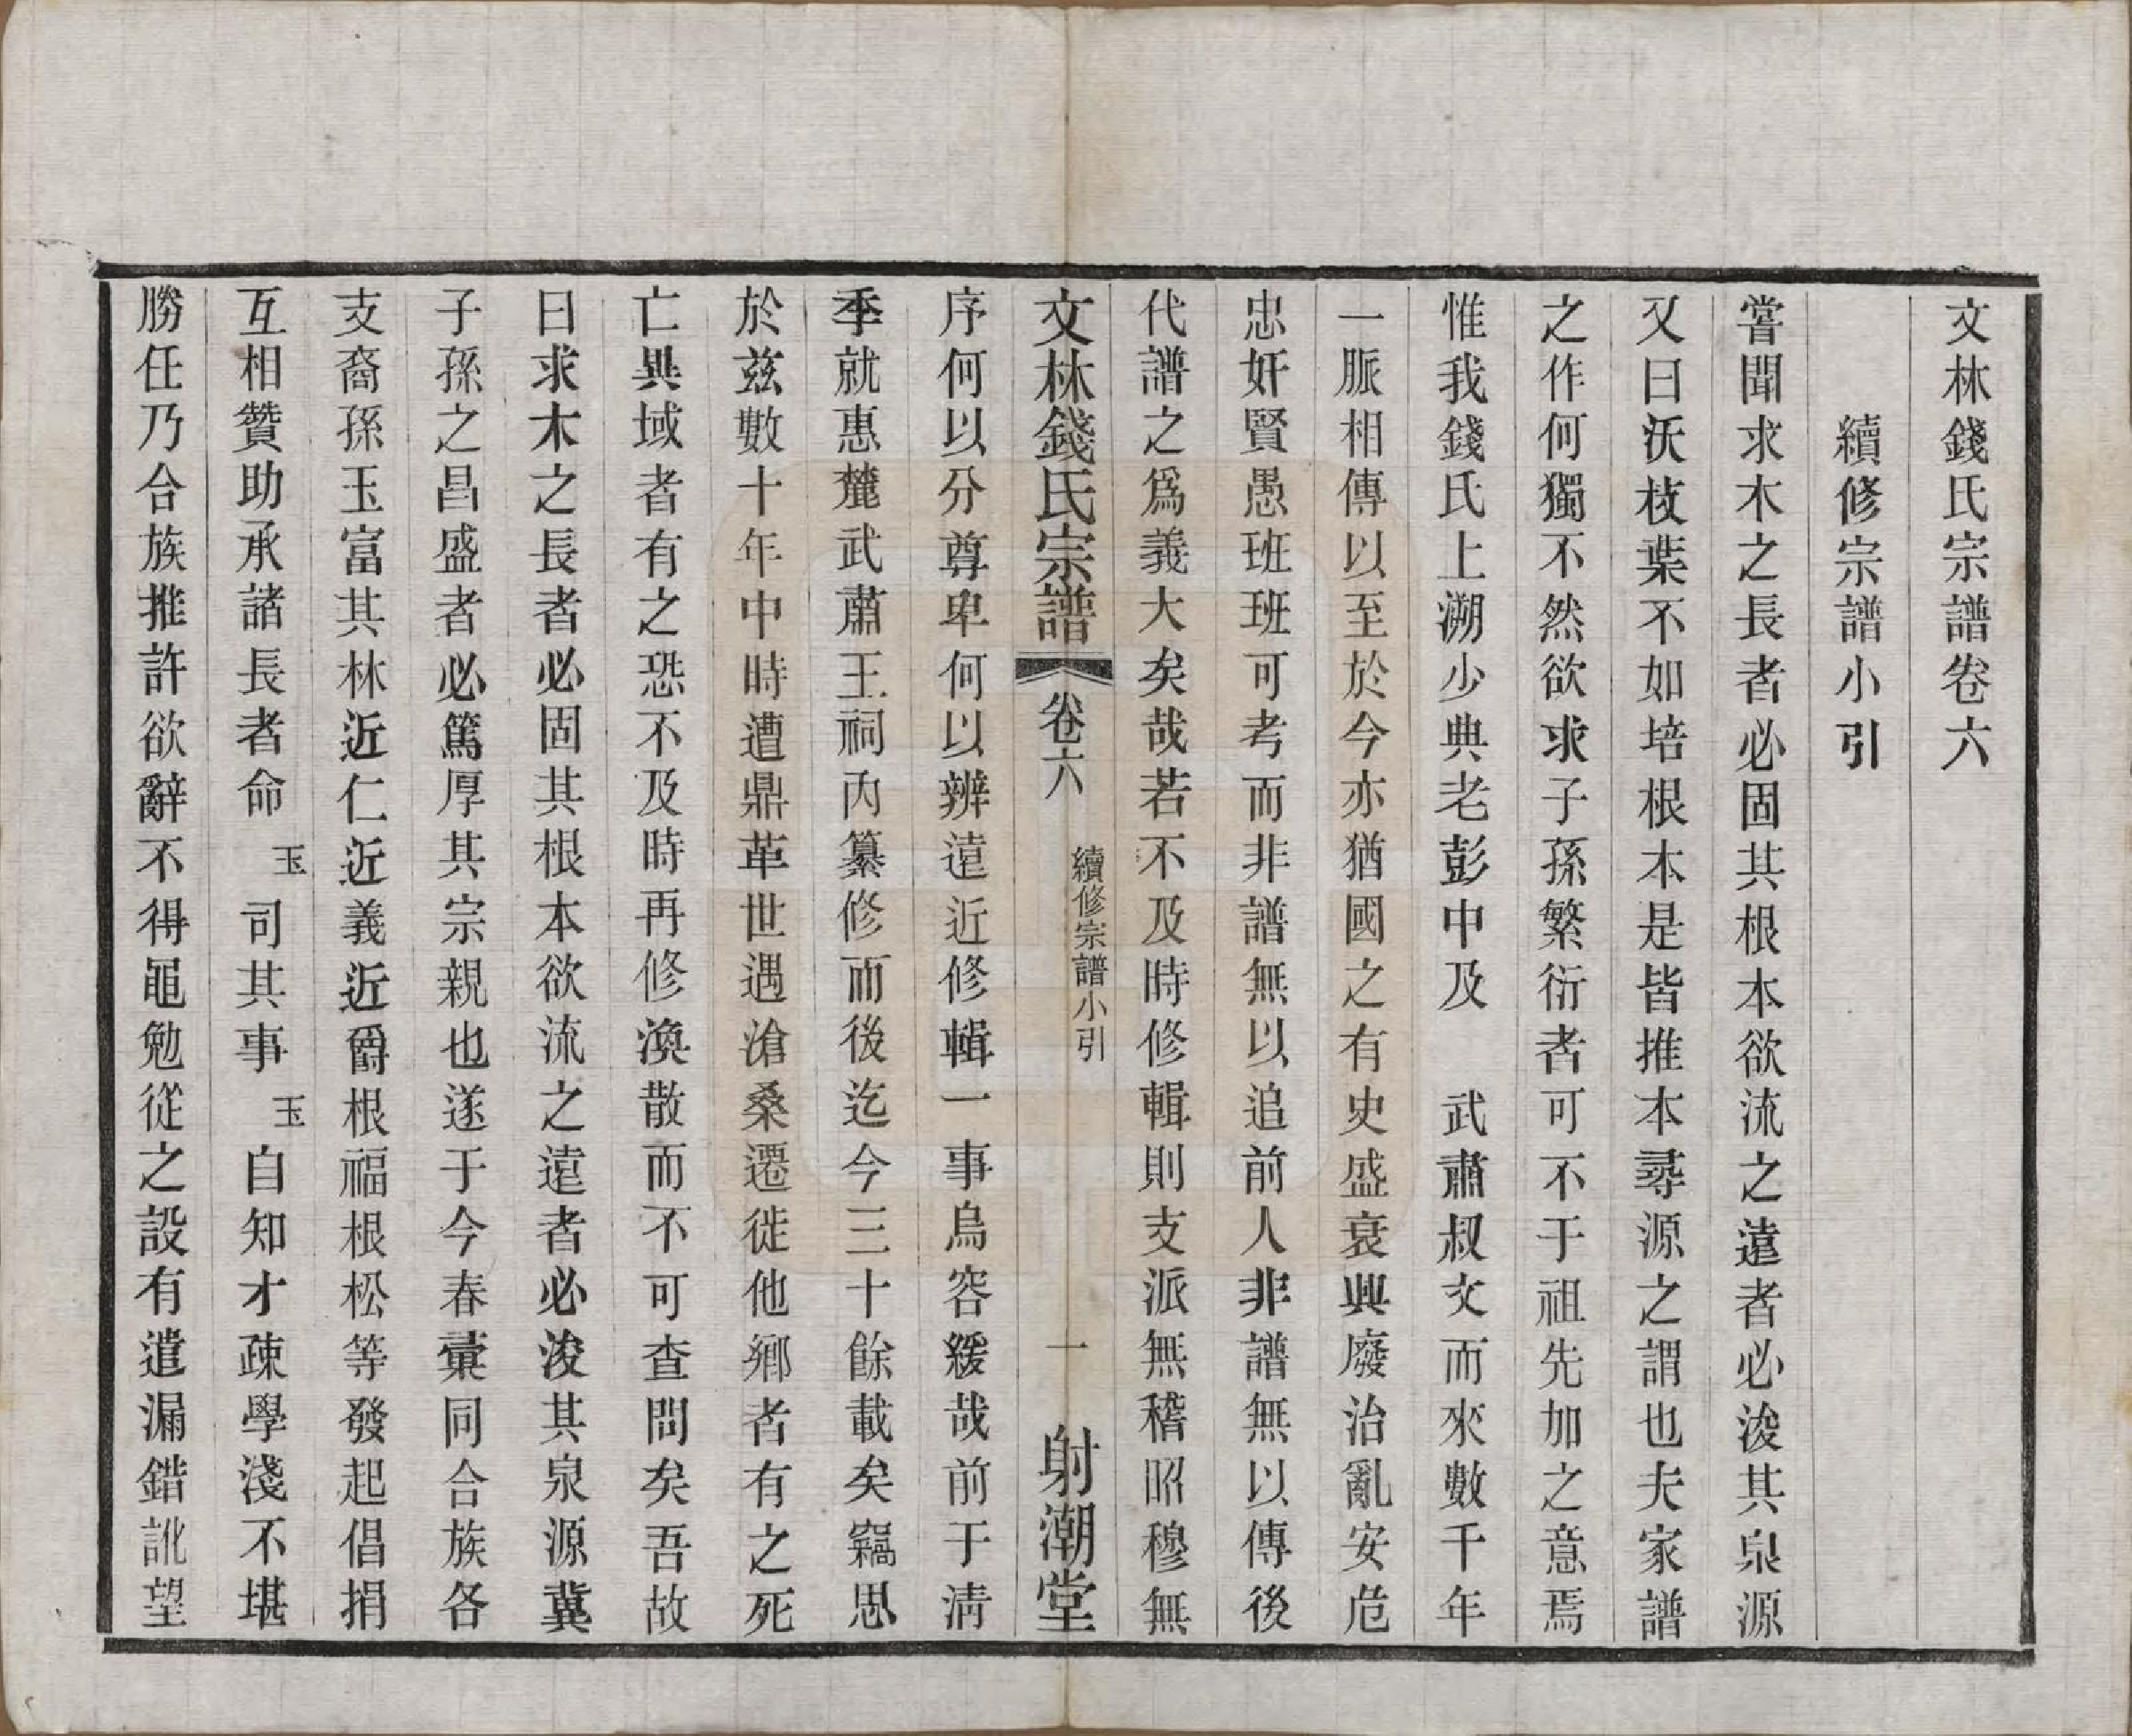 文林錢氏宗譜卷六
續修宗譜小引
嘗聞求木之長者必固其根本欲流之遠者必浚其泉源
又曰沃枝葉不如培根本是皆推本尋源之謂也夫家譜
之作何獨不然欲求子孫繁衍者可不于祖先加之意焉
惟我錢氏上溯少典老彭中及　武肅叔文而來數千年
一脈相傳以至於今亦猶國之有史盛衰興廢治亂安危
忠奸賢愚班班可考而非譜無以追前人非譜無以傳後
代譜之爲義大矣哉若不及時修輯則支派無稽昭穆無
文林錢氏宗譜　卷六　續修宗譜小引　一　射潮堂
序何以分尊卑何以辨遠近修輯一事烏容緩哉前于淸
季就惠麓武肅王祠內纂修而後迄今三十餘載矣竊思
於兹數十年中時遭鼎革世遇滄桑遷徙他鄉者有之死
亡異域者有之恐不及時再修渙散而不可查問矣吾故
曰求木之長者必固其根本欲流之遠者必浚其泉源冀
子孫之昌盛者必篤厚其宗親也遂于今春彚同合族各
支裔孫玉富其林近仁近義近爵根福根松等發起倡捐
互相贊助承諸長者命玉司其事玉自知才疎學淺不堪
勝任乃合族推許欲辭不得黽勉從之設有遺漏錯訛望